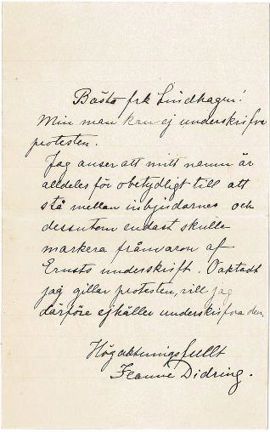 Bästa frk Lindhagen!
Min man kan ej underskrifva
protesten.
Jag anser att mitt namn är
alldeles för obetydligt till att
stå mellan inbjudarnes och
dessutom endast skulle
markera frånvaron af
Ernsts underskrift. Oaktadt
jag gillar protesten, vill jag
därföre ej häller underskrifva den.
Högaktningsfullt
Jeanne Didring.